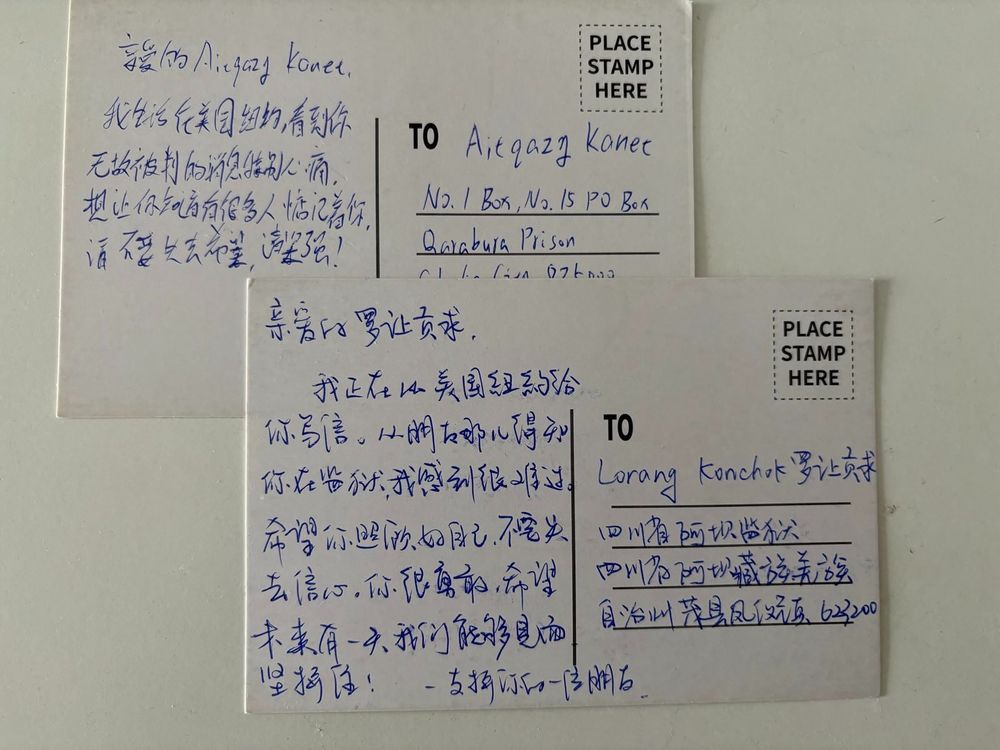 亲爱的 Aitqazy Konet,
我生活在美国纽约,看到你
无故被判的消息特别心痛,
想让你知道有很多人惦记着你,
请不要失去希望,请坚强!
PLACE
STAMP
HERE
TO Aitqazy Konet
No. 1 Box, No. 15 PO Box
Qarabura Prison
亲爱的罗让贡求,
我正在从美国纽约给
你写信。从朋友那儿得知
你在监狱,我感到很难过。
希望你照顾好自己,不要失
去信心。你很勇敢,希望
未来有一天我们能够见面
坚持住!
-支持你的一位朋友
PLACE
STAMP
HERE
TO
Lorang Konchok 罗让贡求
四川省阿坝监狱
四川省阿坝藏族羌族
自治州茂县凤仪镇 623200